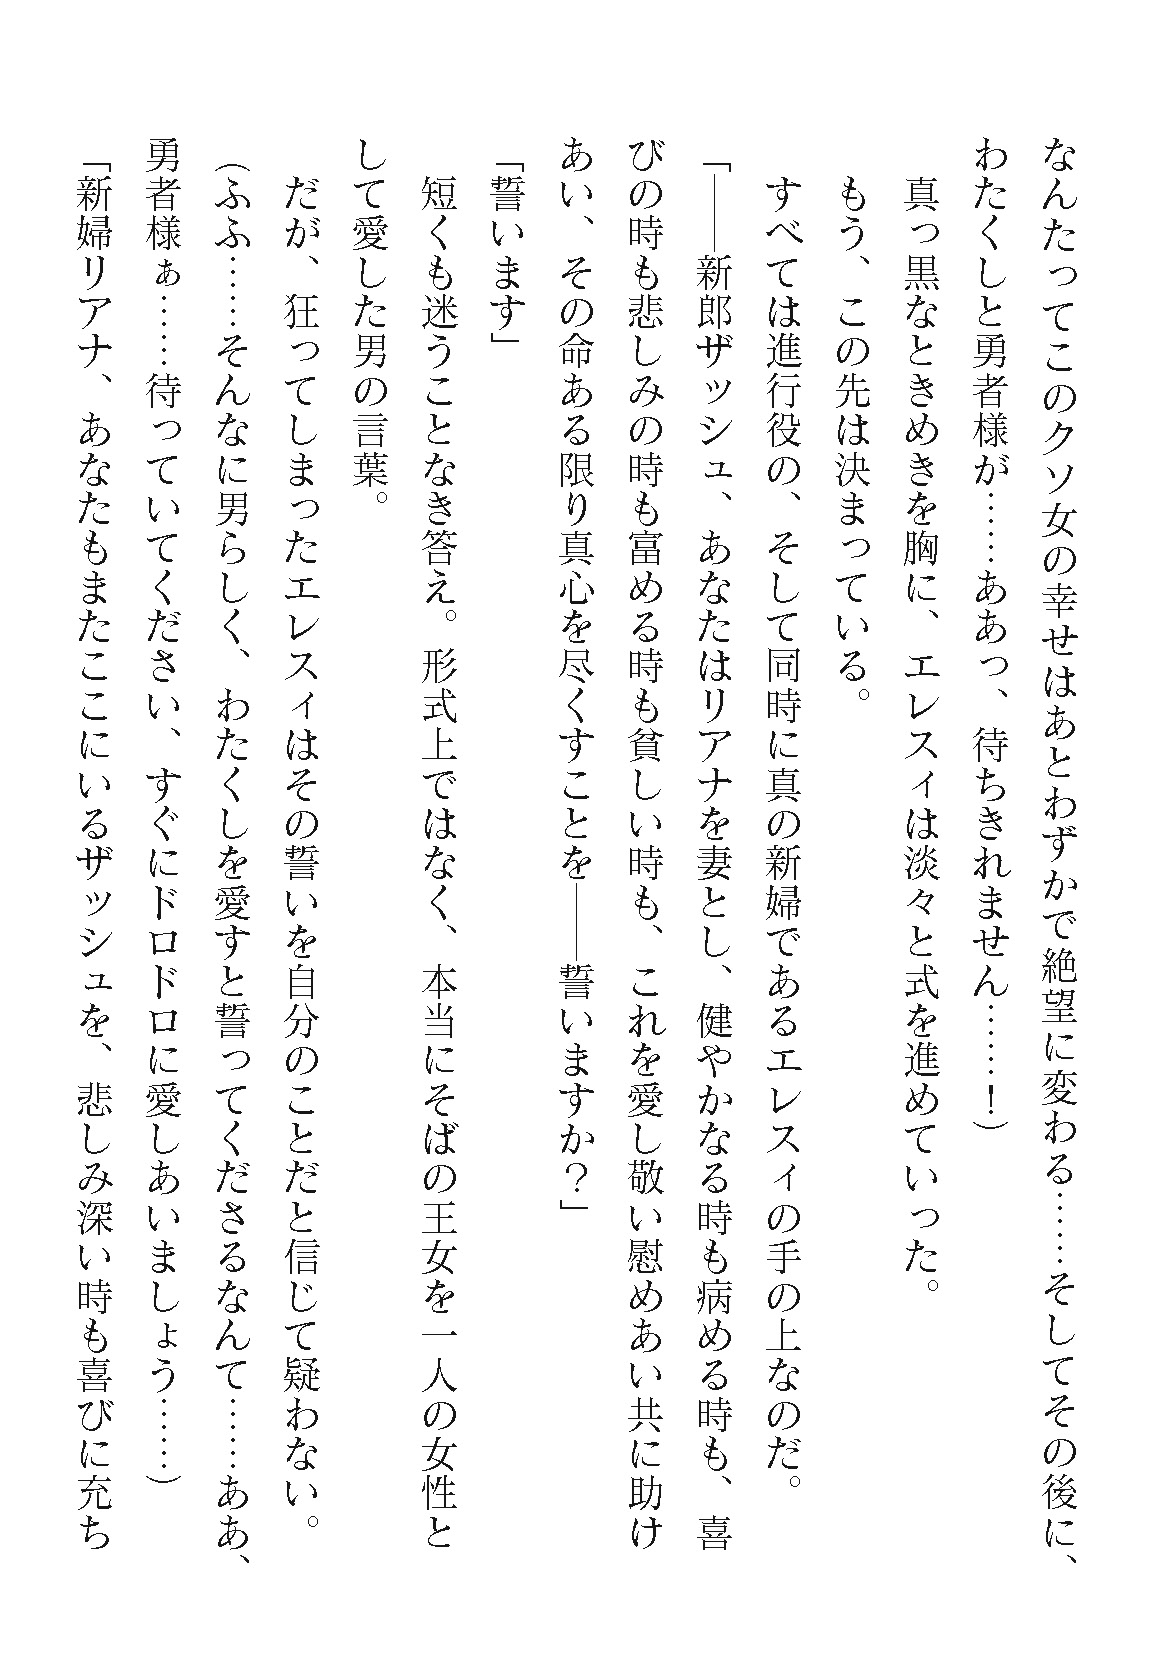 なんたってこのクソ女の幸せはあとわずかで絶望に変わる……そしてその後に、
わたくしと勇者様が……ああっ、待ちきれません……！）
　真っ黒なときめきを胸に、エレスィは淡々と式を進めていった。
　もう、この先は決まっている。
　すべては進行役の、そして同時に真の新婦であるエレスィの手の上なのだ。
「――新郎ザッシュ、あなたはリアナを妻とし、健やかなる時も病める時も、喜
びの時も悲しみの時も富める時も貧しい時も、これを愛し敬い慰めあい共に助け
あい、その命ある限り真心を尽くすことを――誓いますか？」
「誓います」
　短くも迷うことなき答え。形式上ではなく、本当にそばの王女を一人の女性と
して愛した男の言葉。
　だが、狂ってしまったエレスィはその誓いを自分のことだと信じて疑わない。
（ふふ……そんなに男らしく、わたくしを愛すと誓ってくださるなんて……ああ、
勇者様ぁ……待っていてください、すぐにドロドロに愛しあいましょう……）
「新婦リアナ、あなたもまたここにいるザッシュを、悲しみ深い時も喜びに充ち